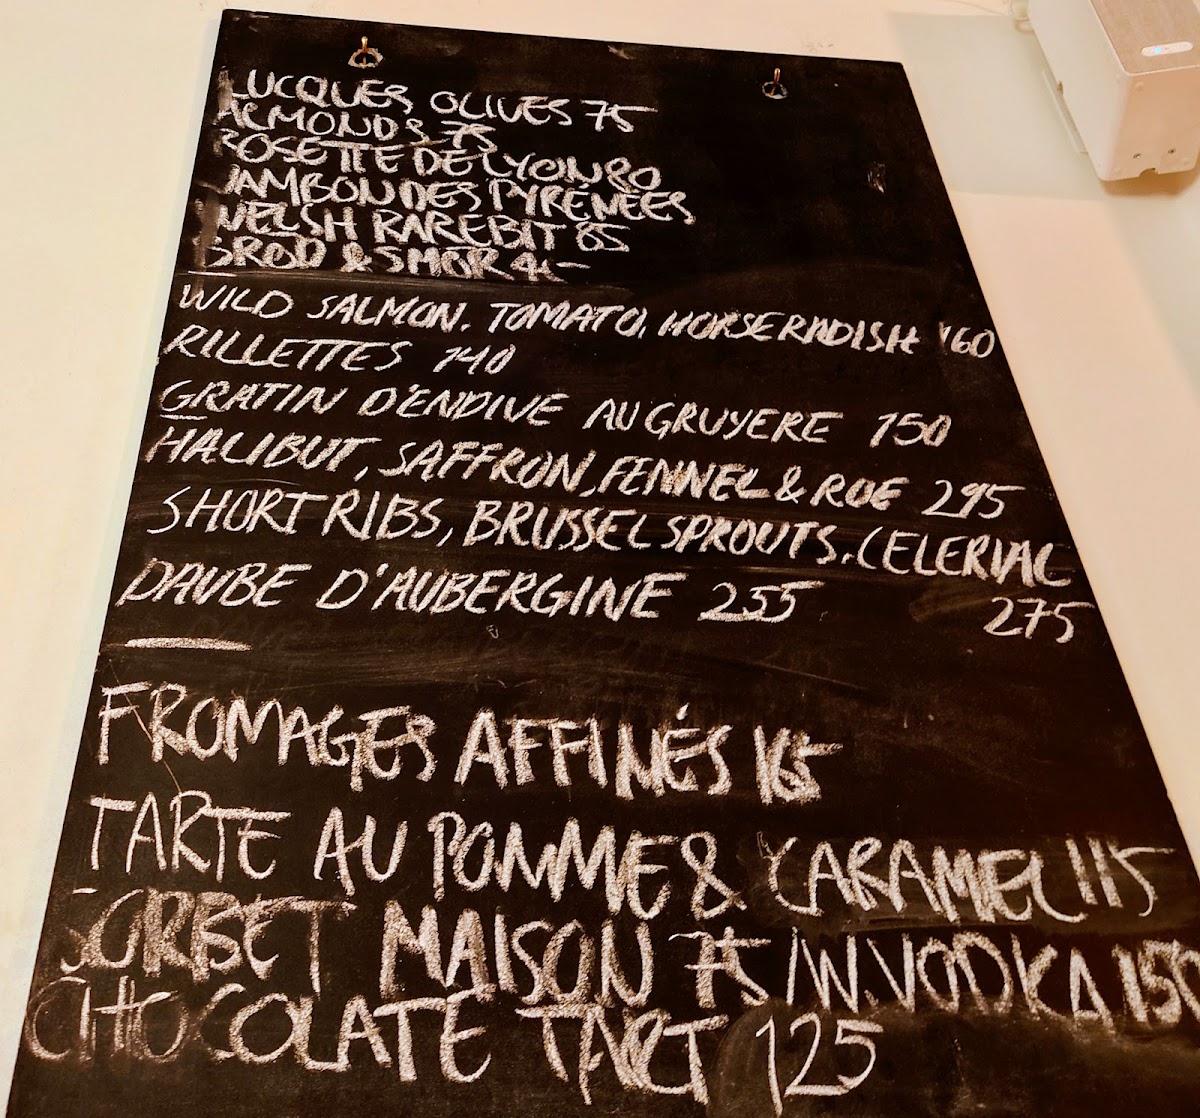 LUCQUES OLIVES 75
ALMONDS 75
ROSETTE DE LYON 80
JAMBON DES PYRÉNÉES
WELSH RAREBIT 85
BRÖD & SMÖR 45-
WILD SALMON. TOMATO, HORSERADISH 160
RILLETTES 140
GRATIN D'ENDIVE AU GRUYERE 150
HALIBUT, SAFFRON, FENNEL & ROE 295
SHORT RIBS, BRUSSEL SPROUTS, CELERIAC
275
DAUBE D'AUBERGINE 255
FROMAGES AFFINÉS 165
TARTE AU POMME & CARAMEL 115
SORBET MAISON 75 /W. VODKA 150
CHOCOLATE TART 125